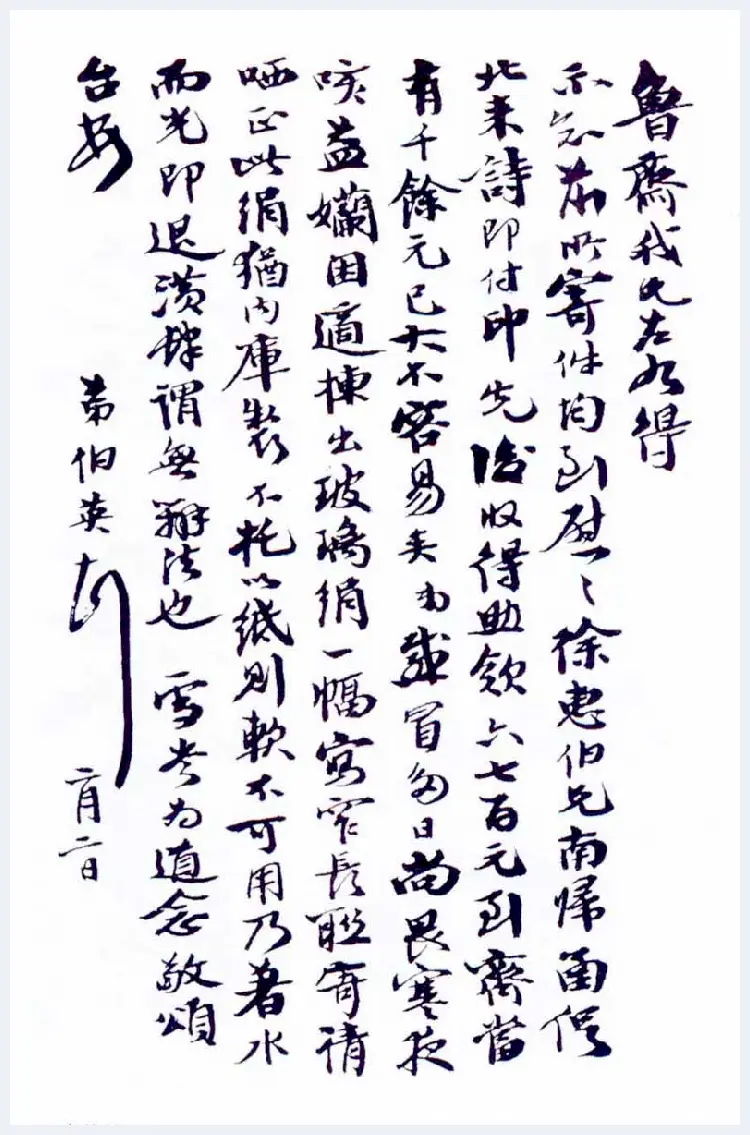 魯齋我兄左右得
示并前所寄件均到慰慰徐惠伯兄南歸面促
北來詩即付印先後收得助欵六七百元到齊當
有千餘元已大不容易矣弟感冒多日尚畏寒夜
咳益孏困適揀出玻璃絹一幅寫窄長聯寄請
哂正此絹猶內庫製不托以紙則軟不可用乃著水
而光即退潢肆謂無辦法也 雪老為道念敬頌
台安
弟伯英
二月二日